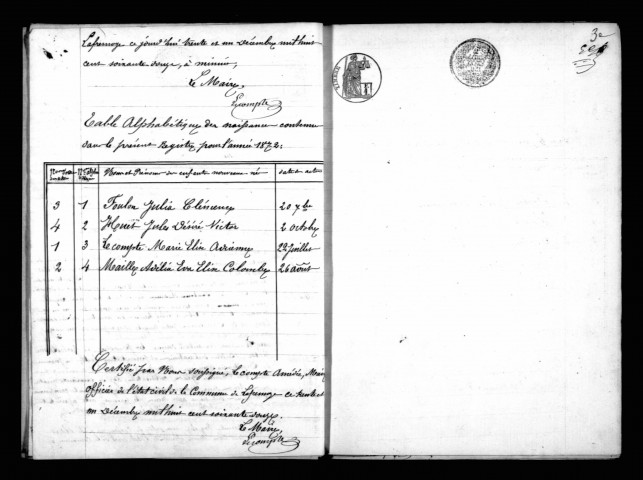 ce jourd'hui trente et un Décembre mil huit
cent soixante douze, à minuit,
Le Maire,
Lecompte
Table Alphabétique des naissances contenues
dans le présent Registre, pour l'année 1872:
Noms et Prénoms des enfants nouveaux nés date des actes
3 1 Foulon Julia Clémence 20 7bre
4 2 Huet Jules Désiré Victor 2 octobre
1 3 Lecompte Marie Elise 22 Juillet
2 4 Mailly Adélia Eva Elise Colombe 26 août
Certifié par Nous soussigné, Lecompte Amédée, Maire
officier de l'état civil de la Commune de ce trente et
un Décembre mil huit cent soixante douze.
Le Maire,
Lecompte